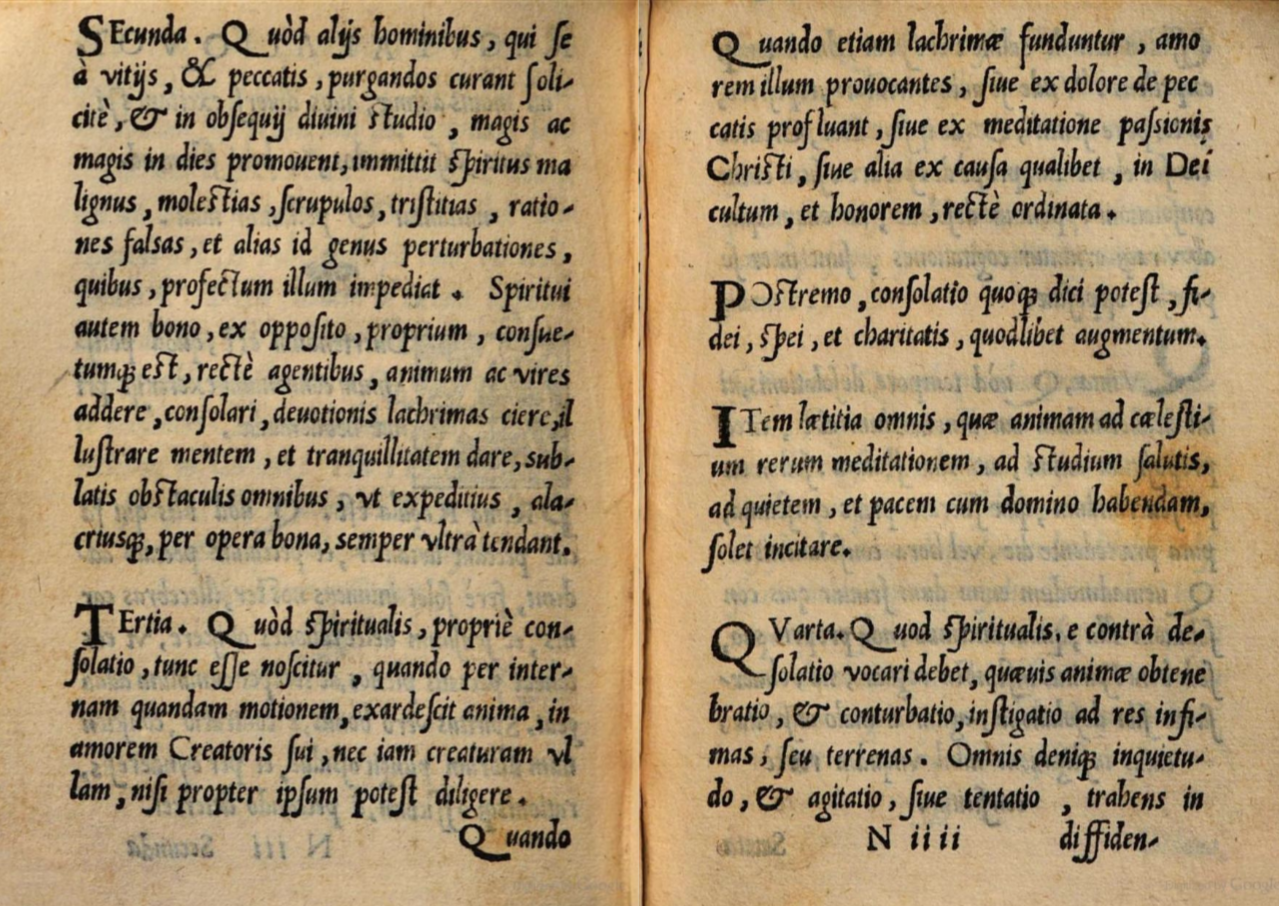 SEcunda. Quòd alijs hominibus, qui se
à vitijs, & peccatis, purgandos curant soli-
citè, & in obsequij diuini studio, magis ac
magis in dies promouent, immittit spiritus ma
lignus, molestias, scrupulos, tristitias, ratio-
nes falsas, et alias id genus perturbationes,
quibus, profectum illum impediat. Spiritui
autem bono, ex opposito, proprium, consue-
tumq́; est, rectè agentibus, animum ac vires
addere, consolari, deuotionis lachrimas ciere, il
lustrare mentem, et tranquillitatem dare, sub-
latis obstaculis omnibus, vt expeditius, ala-
criusq́;, per opera bona, semper vltrà tendant.
TErtia. Quòd spiritualis, propriè con-
solatio, tunc esse noscitur, quando per inter-
nam quandam motionem, exardescit anima, in
amorem Creatoris sui, nec iam creaturam vl
lam, nisi propter ipsum potest diligere.
Quando
Quando etiam lachrimæ funduntur, amo
rem illum prouocantes, siue ex dolore de pec
catis profluant, siue ex meditatione passionis
Christi, siue alia ex causa qualibet, in Dei
cultum, et honorem, rectè ordinata.
POstremo, consolatio quoq́; dici potest, fi-
dei, spei, et charitatis, quodlibet augmentum.
ITem lætitia omnis, quæ animam ad cælesti-
um rerum meditationem, ad studium salutis,
ad quietem, et pacem cum domino habendam,
solet incitare.
QVarta. Quod spiritualis, e contrà de-
solatio vocari debet, quæuis animæ obtene
bratio, & conturbatio, instigatio ad res infi-
mas, seu terrenas. Omnis deniq́; inquietu-
do, & agitatio, siue tentatio, trahens in
N iiii diffiden-